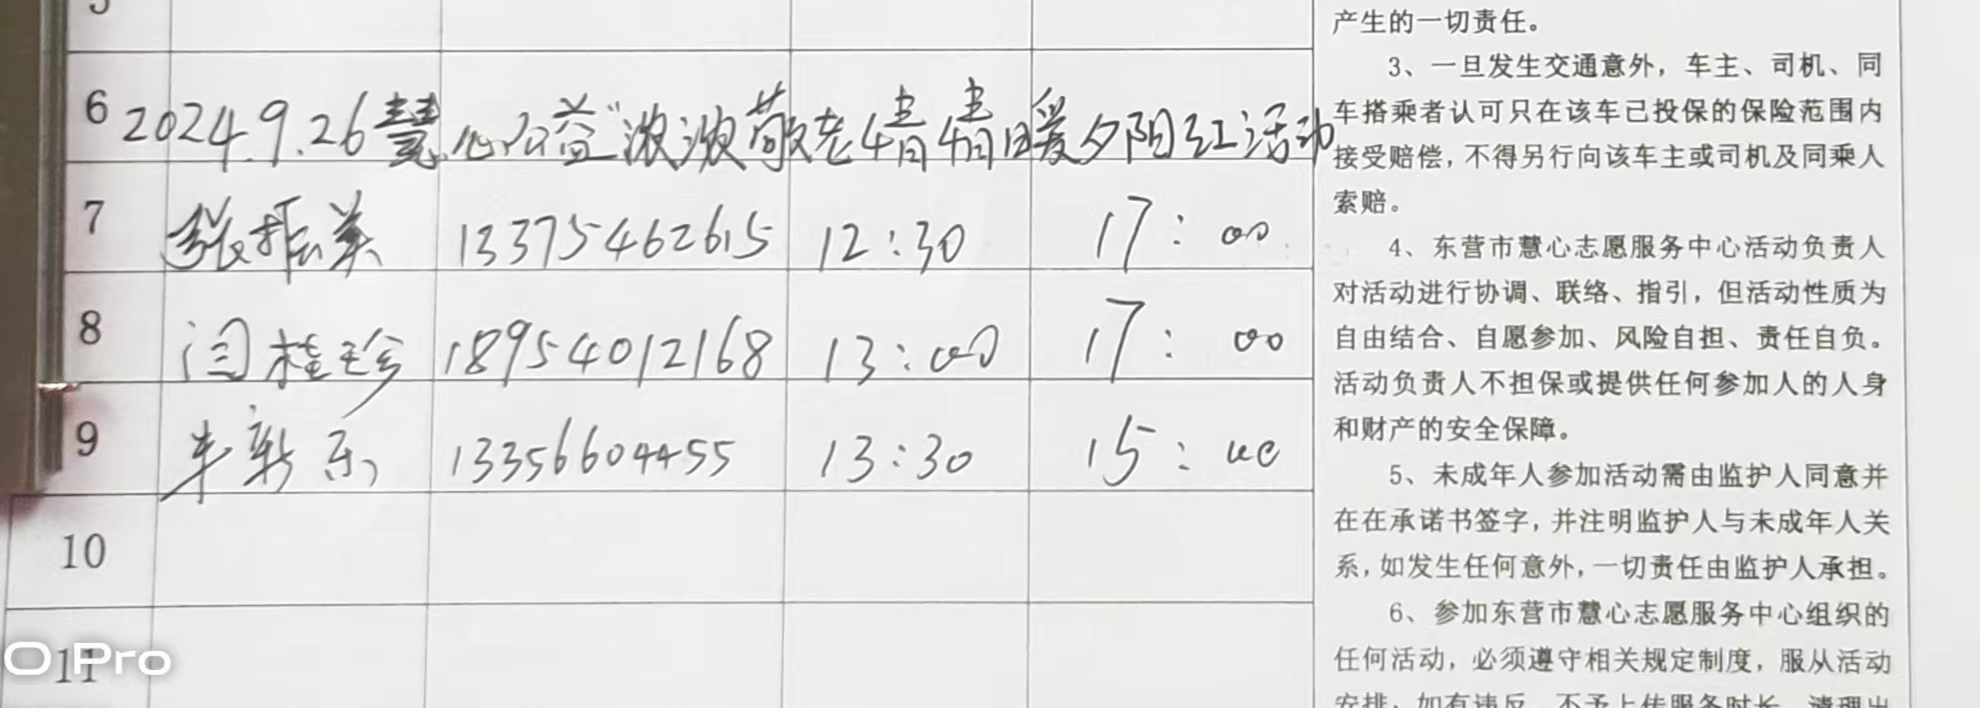 5
6 2024.9.26慧心公益"浓浓敬老情情暖夕阳红活动
7 张振英 13375462615 12:30 17:00
8 闫桂珍 18954012168 13:00 17:00
9 牟新乐 13356604455 13:30 15:00
10
11
O Pro
产生的一切责任。
3、一旦发生交通意外，车主、司机、同
车搭乘者认可只在该车已投保的保险范围内
接受赔偿，不得另行向该车主或司机及同乘人
索赔。
4、东营市慧心志愿服务中心活动负责人
对活动进行协调、联络、指引，但活动性质为
自由结合、自愿参加、风险自担、责任自负。
活动负责人不担保或提供任何参加人的人身
和财产的安全保障。
5、未成年人参加活动需由监护人同意并
在在承诺书签字，并注明监护人与未成年人关
系，如发生任何意外，一切责任由监护人承担。
6、参加东营市慧心志愿服务中心组织的
任何活动，必须遵守相关规定制度，服从活动
安排；如有违反，不予上传服务时长，清理出